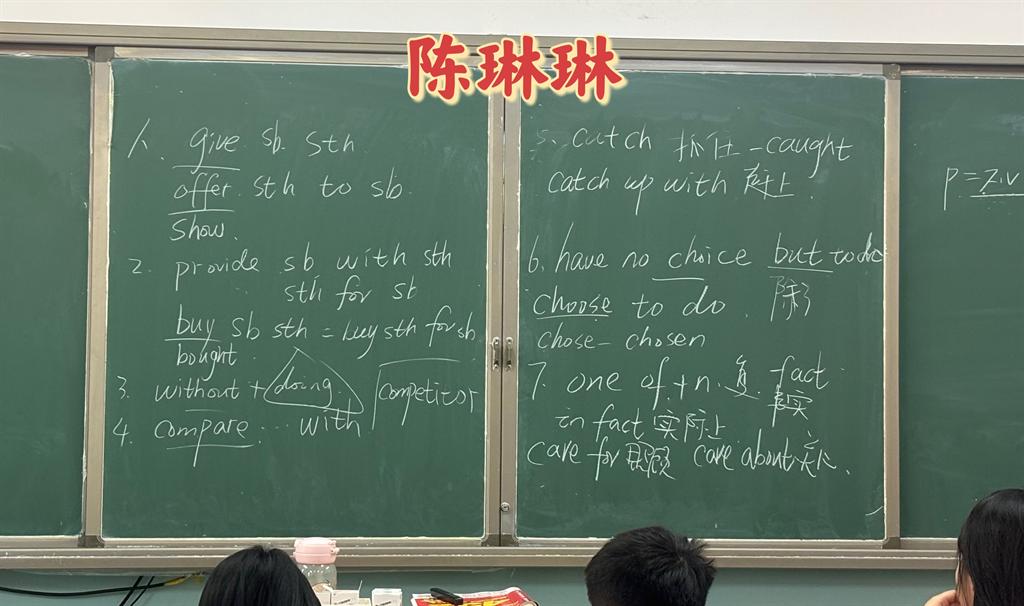 陈琳琳
1. give sb. sth.
offer sth to sb.
show.
2. provide sb with sth
sth for sb
buy sb sth = buy sth for sb.
bought.
3. without + doing
competitor
4. compare ... with
5. catch 抓住 - caught
catch up with 赶上.
6. have no choice but to do
choose to do. 除了
chose - chosen
7. one of + n. 复. fact
事实
in fact 实际上
care for 照顾 care about 关心.